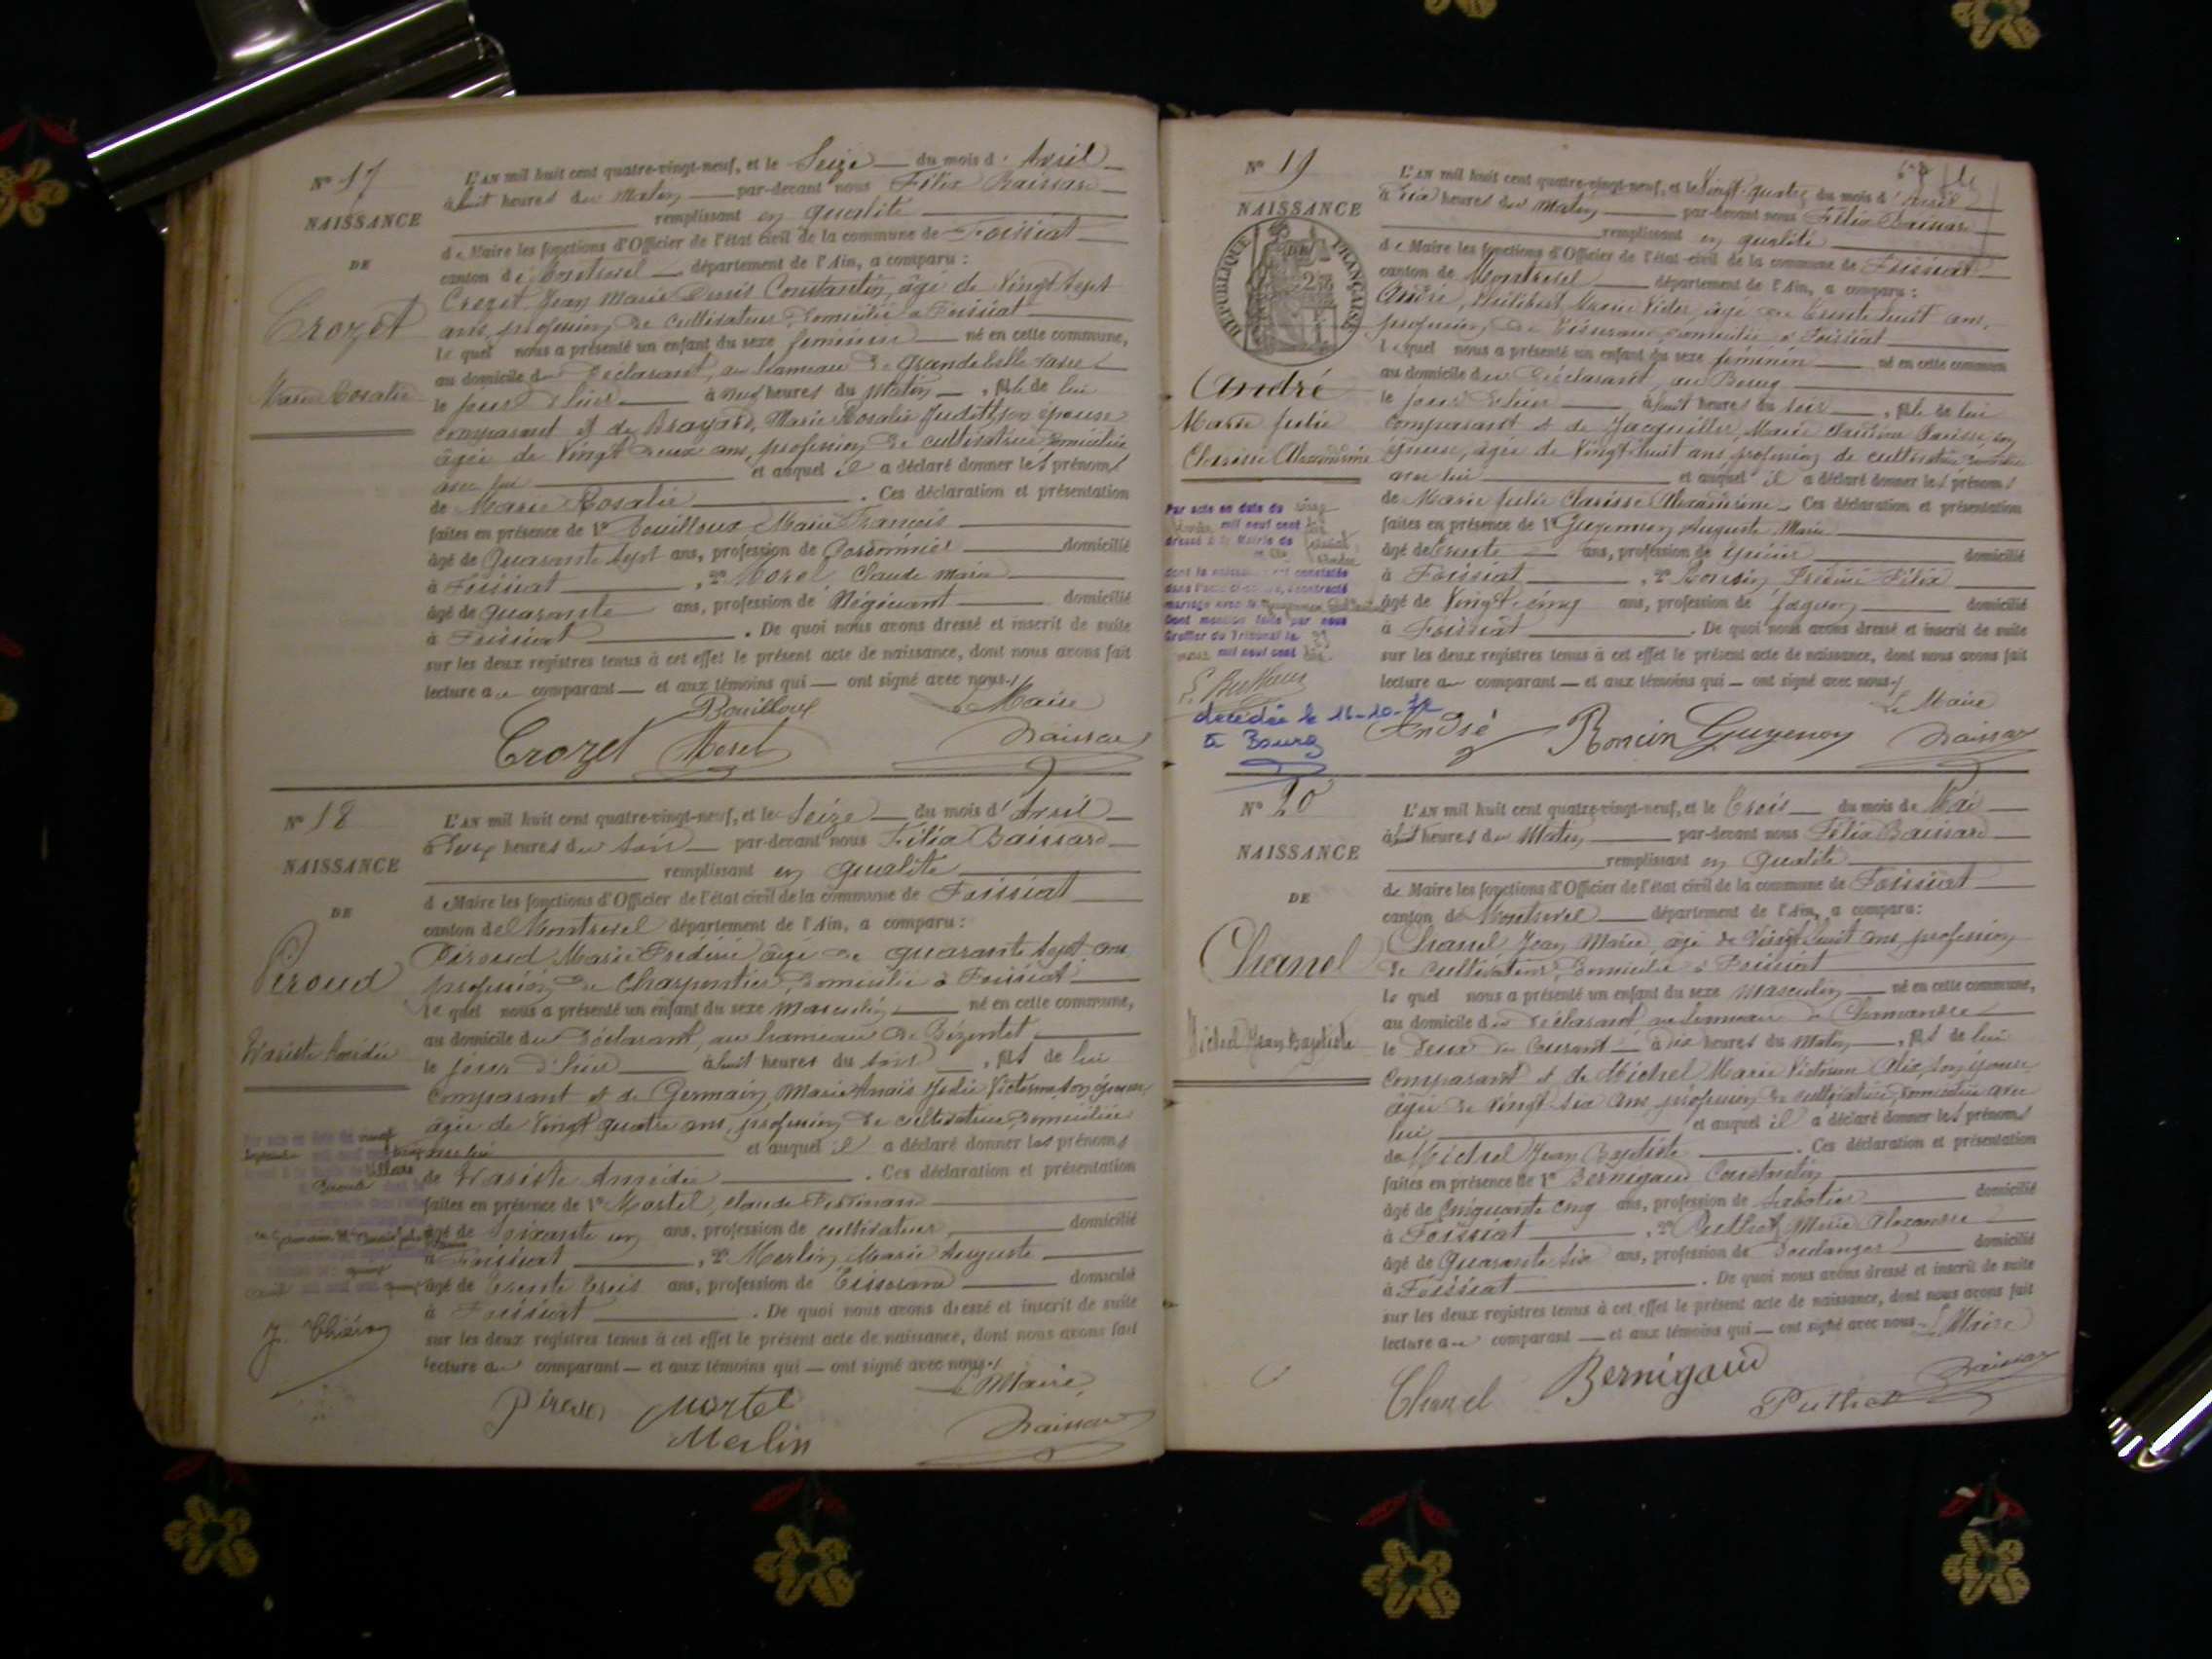 Nº 17
NAISSANCE
DE
Crozet
Marie Rosalie
L'AN mil huit cent quatre-vingt-neuf, et le Seize du mois d'Avril
à huit heures du Matin par-devant nous Félix Baissard
remplissant en qualité
de Maire les fonctions d'Officier de l'état civil de la commune de Foissiat
canton de Montrevel département de l'Ain, a comparu :
Crozet Jean Marie Denis Constantin, âgé de Vingt sept
ans, profession de cultivateur, domicilié à Foissiat
le quel nous a présenté un enfant du sexe féminin né en cette commune,
au domicile du Déclarant, au hameau de
le jour d'hier à neuf heures du Matin, fille de lui
comparant et de Brayard, Marie Rosalie Judith son épouse
âgée de Vingt deux ans, profession de cultivatrice domiciliée
avec lui et auquel il a déclaré donner les prénoms
de Marie Rosalie . Ces déclaration et présentation
faites en présence de 1º Bouilloux, Marie François
âgé de Quarante sept ans, profession de Cordonnier domicilié
à Foissiat , 2º Morel Claude Marie
âgé de quarante ans, profession de Négociant domicilié
à Foissiat . De quoi nous avons dressé et inscrit de suite
sur les deux registres tenus à cet effet le présent acte de naissance, dont nous avons fait
lecture au comparant et aux témoins qui ont signé avec nous.
Bouilloux Le Maire
Crozet Morel Baissard
Nº 18
NAISSANCE
DE
Piroud
Evariste Amédée
L'AN mil huit cent quatre-vingt-neuf, et le Seize du mois d'Avril
à Deux heures du soir par-devant nous Félix Baissard
remplissant en qualité
de Maire les fonctions d'Officier de l'état civil de la commune de Foissiat
canton de Montrevel département de l'Ain, a comparu :
Piroud Marie Frédéric âgé de quarante sept ans
profession de Charpentier, domicilié à Foissiat
le quel nous a présenté un enfant du sexe masculin né en cette commune,
au domicile du Déclarant, au hameau de Bézentet
le jour d'hier à huit heures du soir, fils de lui
comparant et de Germain, Marie Anaïs Julie Victorine son épouse,
âgée de Vingt quatre ans, profession de cultivatrice, domiciliée
avec lui et auquel il a déclaré donner les prénoms
de Evariste Amédée . Ces déclaration et présentation
faites en présence de 1º Mortel, Claude Ferdinand
âgé de Soixante un ans, profession de cultivateur, domicilié
à Foissiat , 2º Merlin, Marie Auguste
âgé de Trente trois ans, profession de Tisserand domicilié
à Foissiat . De quoi nous avons dressé et inscrit de suite
sur les deux registres tenus à cet effet le présent acte de naissance, dont nous avons fait
lecture au comparant et aux témoins qui ont signé avec nous.
Le Maire,
Piroud Mortel
Merlin Baissard
Nº 19
NAISSANCE
RÉPUBLIQUE FRANÇAISE
André
Marie Julie
Clarisse Alexandrine
Par acte en date du
mil neuf cent dix
dressé à la Mairie de
dont la naissance est constatée
dans l'acte ci-contre, a contracté
mariage avec
Dont mention faite par nous
Greffier du Tribunal le
mars mil neuf cent dix
décédée le 16-10-72
à Bourg
L'AN mil huit cent quatre-vingt-neuf, et le Vingt-quatre du mois d'Avril
à Six heures du Matin par-devant nous Félix Baissard
remplissant en qualité
de Maire les fonctions d'Officier de l'état civil de la commune de Foissiat
canton de Montrevel département de l'Ain, a comparu :
André, Philibert Marie Victor, âgé de trente huit ans,
profession de Tisserand, domicilié à Foissiat
le quel nous a présenté un enfant du sexe féminin né en cette commune
au domicile du Déclarant, au Bourg
le jour d'hier à huit heures du soir, fille de lui
comparant et de Jacquillet, Marie Clarisse son
épouse, âgée de Vingt-huit ans, profession de cultivatrice domiciliée
avec lui et auquel il a déclaré donner les prénoms
de Marie Julie Clarisse Alexandrine . Ces déclaration et présentation
faites en présence de 1º Guyennon, Auguste Marie
âgé de trente ans, profession de domicilié
à Foissiat , 2º Roncin, Félix
âgé de Vingt-cinq ans, profession de domicilié
à Foissiat . De quoi nous avons dressé et inscrit de suite
sur les deux registres tenus à cet effet le présent acte de naissance, dont nous avons fait
lecture au comparant et aux témoins qui ont signé avec nous.
Le Maire
André Roncin Guyennon Baissard
Nº 20
NAISSANCE
DE
Chanel
Michel Jean Baptiste
L'AN mil huit cent quatre-vingt-neuf, et le Trois du mois de Mai
à heures du Matin par-devant nous Félix Baissard
remplissant en qualité
de Maire les fonctions d'Officier de l'état civil de la commune de Foissiat
canton de Montrevel département de l'Ain, a comparu :
Chanel Jean Marie, âgé de Vingt huit ans, profession
de cultivateur, domicilié à Foissiat
le quel nous a présenté un enfant du sexe masculin né en cette commune,
au domicile du déclarant au hameau de
le Deux du Courant à six heures du Matin, fils de lui
comparant et de Michel Marie Victorine Alix, son épouse
âgée de Vingt six ans, profession de cultivatrice, domiciliée avec
lui et auquel il a déclaré donner les prénoms
de Michel Jean Baptiste . Ces déclaration et présentation
faites en présence de 1º Bernigaud Constantin
âgé de Cinquante cinq ans, profession de Sabotier domicilié
à Foissiat , 2º Puthod, Marie Alexandre
âgé de Quarante six ans, profession de Boulanger domicilié
à Foissiat . De quoi nous avons dressé et inscrit de suite
sur les deux registres tenus à cet effet le présent acte de naissance, dont nous avons fait
lecture au comparant et aux témoins qui ont signé avec nous. Le Maire
Chanel Bernigaud Puthod Baissard